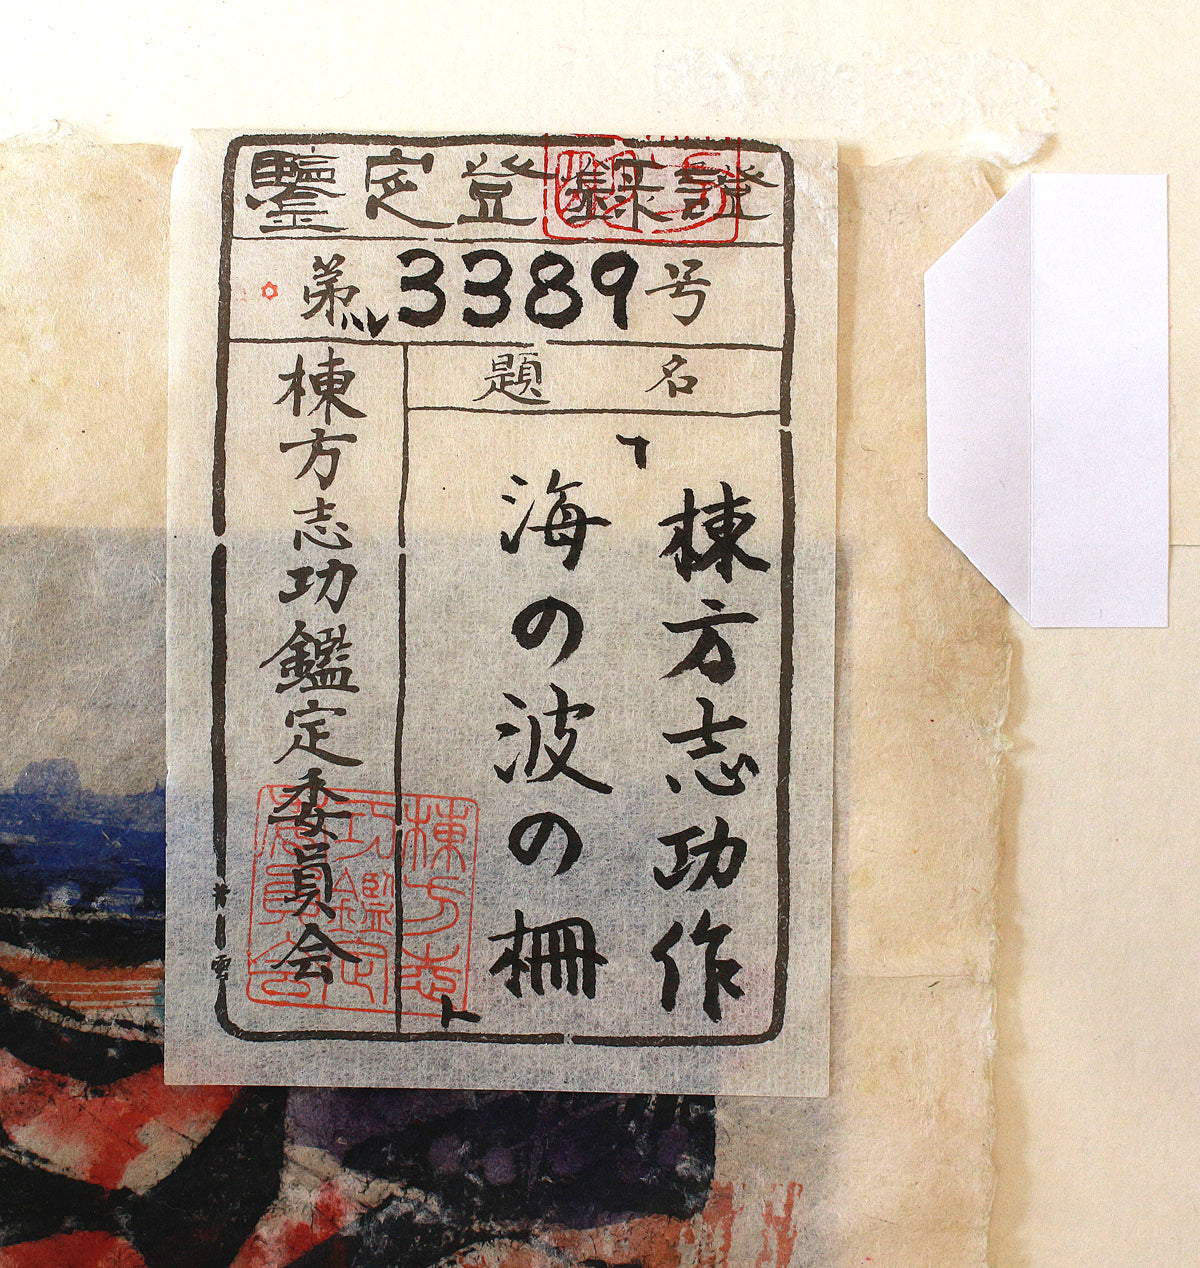 鑒定登録證
第3389号
題名
棟方志功作
「海の波の柵」
棟方志功鑑定委員会
棟方志
功鑑定
委員会